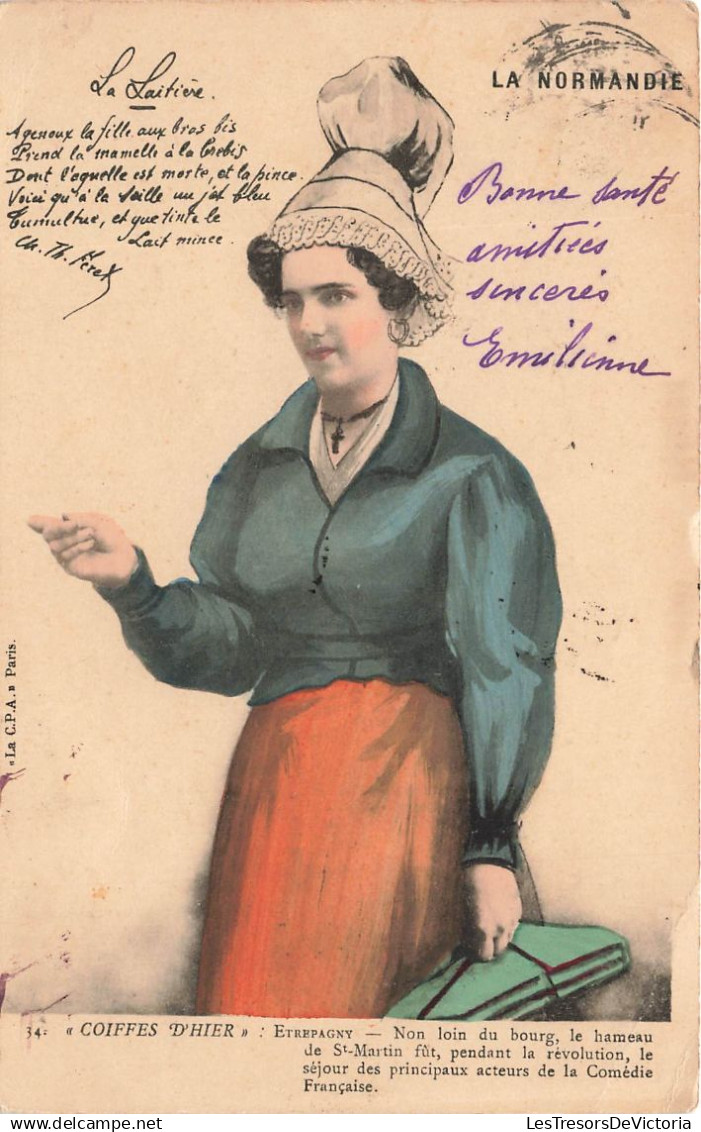 La Laitière.
Agenoux la fille aux bras bis
Prend la mamelle à la brebis
Dont l'aguelle est morte, et la pince.
Voici qu'à la seille un jet bleu
Tumultue, et que tinte le
Lait mince.
Ch. Th. Feret
LA NORMANDIE
Bonne santé
amitiées
sincerés
Emilienne
« La C.P.A. » Paris.
34= « COIFFES D'HIER » : ETREPAGNY — Non loin du bourg, le hameau
de St-Martin fût, pendant la révolution, le
séjour des principaux acteurs de la Comédie
Française.
LesTresorsDeVictoria